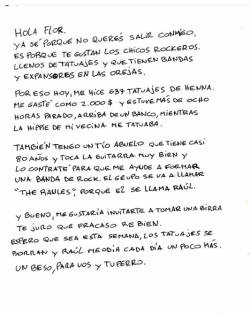 HOLA FLOR.
YA SÉ PORQUE NO QUERÉS SALIR CONMIGO,
ES PORQUE TE GUSTAN LOS CHICOS ROCKEROS.
LLENOS DE TATUAJES Y QUE TIENEN BANDAS
Y EXPANSORES EN LAS OREJAS.
POR ESO HOY, ME HICE 637 TATUAJES DE HENNA.
ME GASTÉ COMO 2.000 $ Y ESTUVE MAS DE OCHO
HORAS PARADO, ARRIBA DE UN BANCO, MIENTRAS
LA HIPPIE DE MI VECINA ME TATUABA.
TAMBIÉN TENGO UN TÍO ABUELO QUE TIENE CASI
80 AÑOS Y TOCA LA GUITARRA MUY BIEN Y
LO CONTRATÉ PARA QUE ME AYUDE A FORMAR
UNA BANDA DE ROCK. EL GRUPO SE VA A LLAMAR
"THE RAULES", PORQUE EL SE LLAMA RAÚL.
Y BUENO, ME GUSTARIA INVITARTE A TOMAR UNA BIRRA
TE JURO QUE FRACASO RE BIEN.
ESPERO QUE SEA ESTA SEMANA, LOS TATUAJES SE
BORRAN Y RAÚL ME ODIA CADA DÍA UN POCO MÁS.
UN BESO, PARA VOS Y TU PERRO.